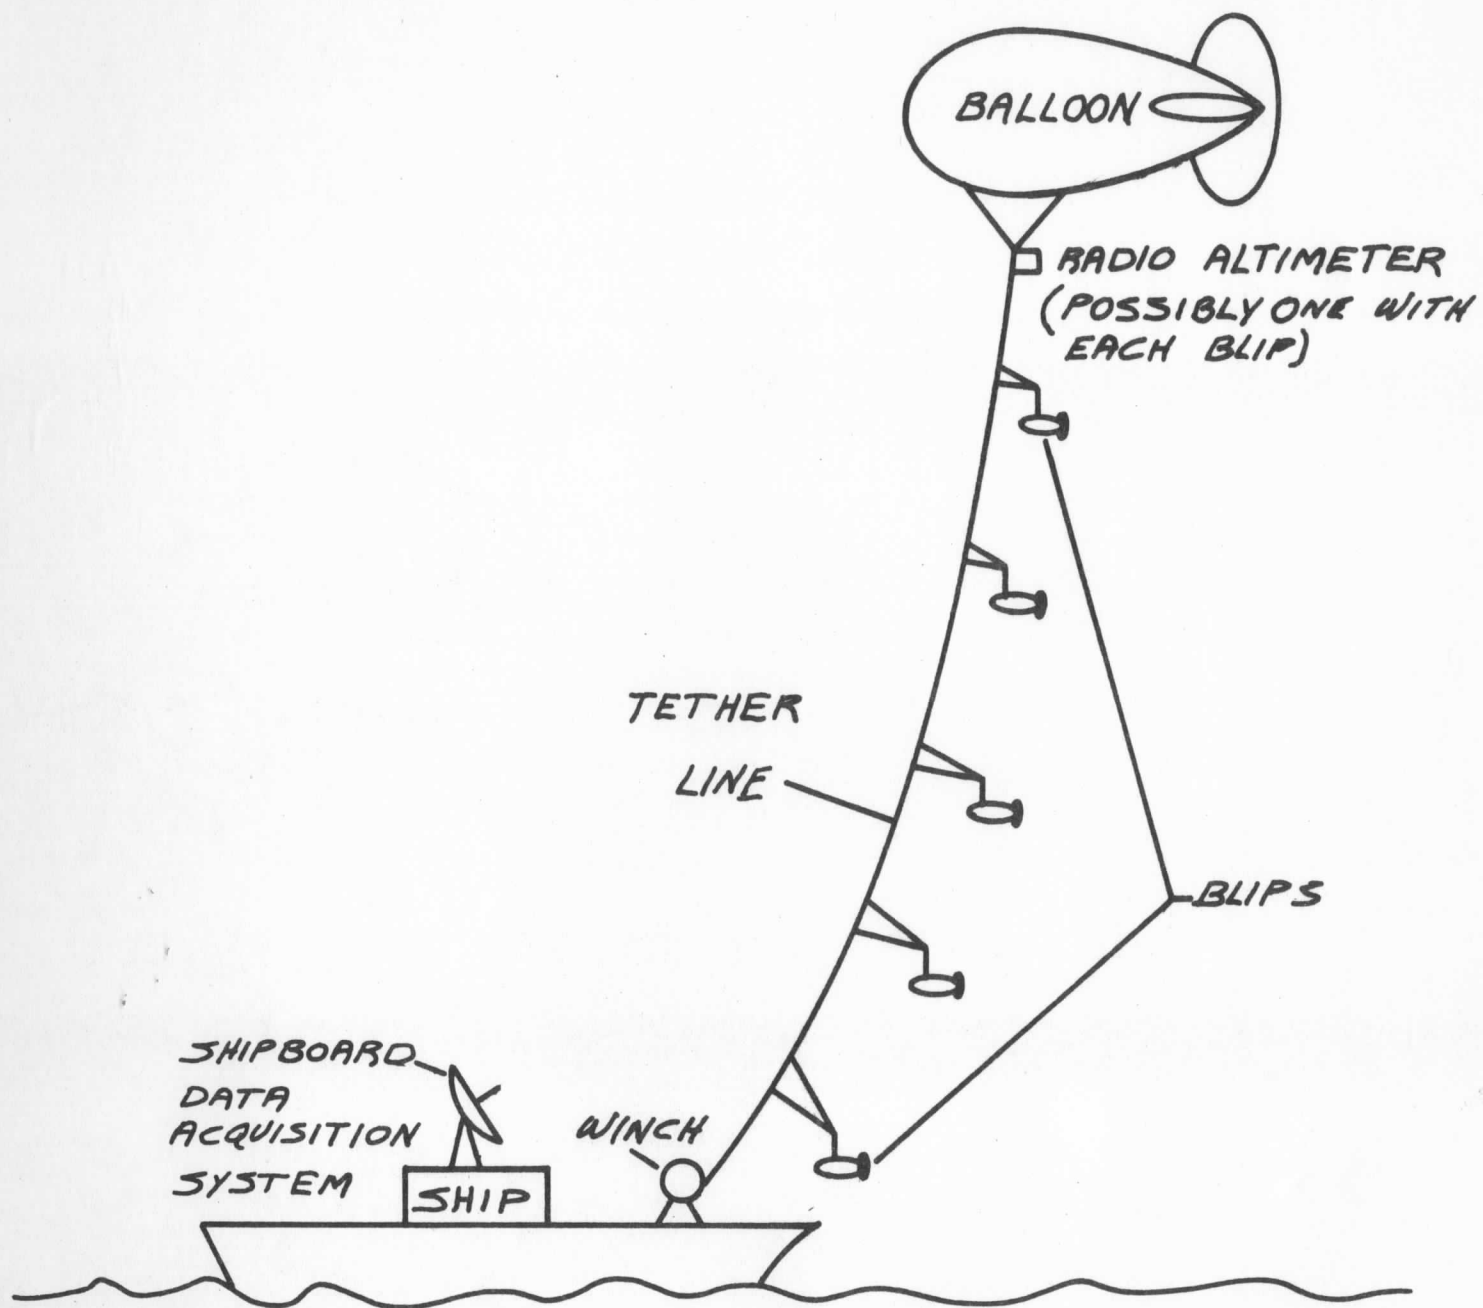 BALLOON
RADIO ALTIMETER
(POSSIBLY ONE WITH
EACH BLIP)
TETHER
LINE
BLIPS
SHIPBOARD
DATA
ACQUISITION
SYSTEM
WINCH
SHIP